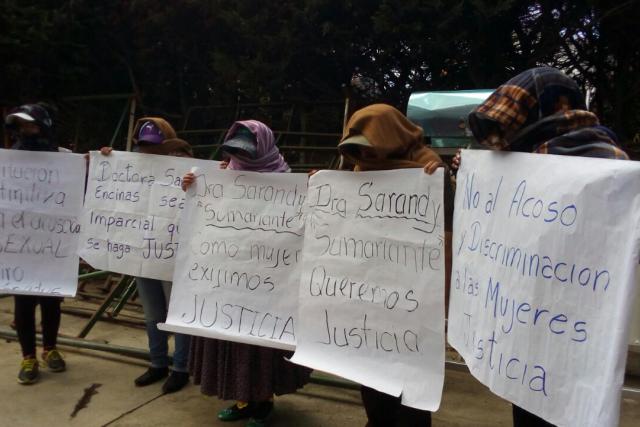 SEXUAL
Doctora Sa
Encinas sea
Imparcial qu
Se haga JUST
Dra Sarandy
"Sumariante"
Como mujer
exijimos
JUSTICIA
Dra Sarandy
"Sumariante"
Queremos
Justicia
No al Acoso
y Discriminacion
a las Mujeres
Justicia